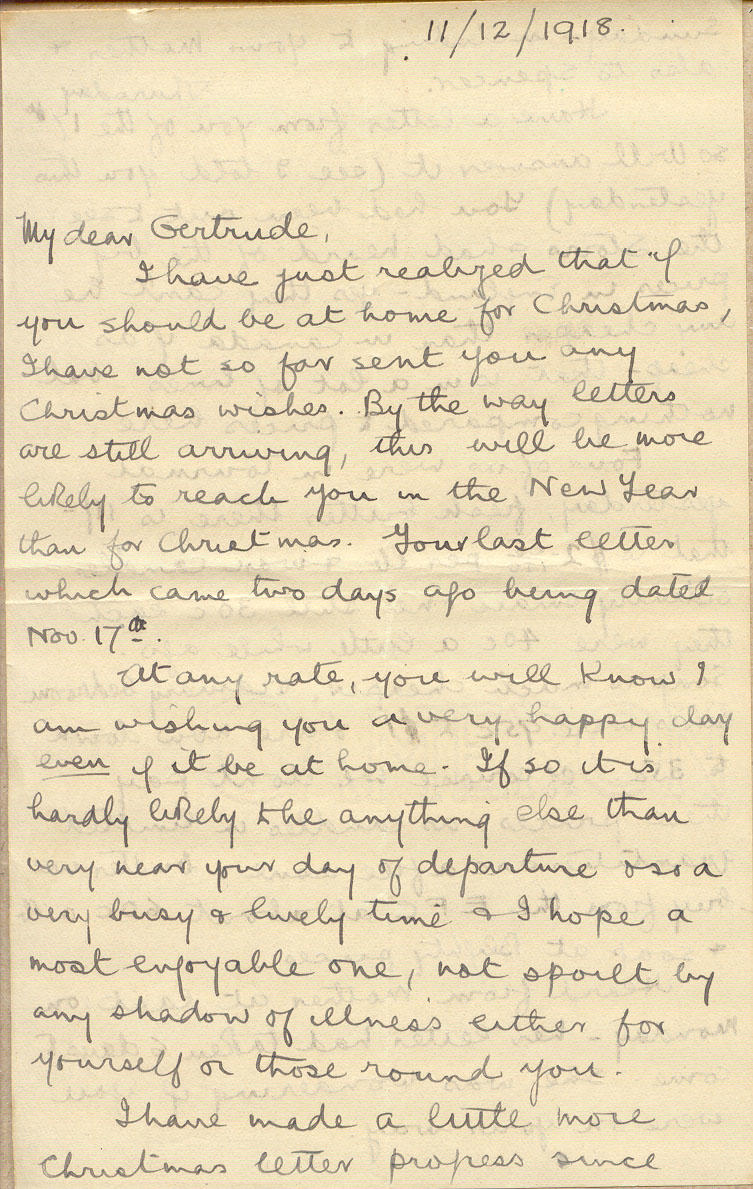 11/12/1918.
My dear Gertrude,
I have just realized that if
you should be at home for Christmas,
I have not so far sent you any
Christmas wishes. By the way letters
are still arriving, this will be more
likely to reach you in the New Year
than for Christmas. Your last letter
which came two days ago being dated
Nov. 17th.
At any rate, you will know I
am wishing you a very happy day
even if it be at home. If so it is
hardly likely to be anything else than
very near your day of departure & so a
very busy & lively time & I hope a
most enjoyable one, not spoilt by
any shadow of illness either for
yourself or those round you.
I have made a little more
Christmas letter progress since